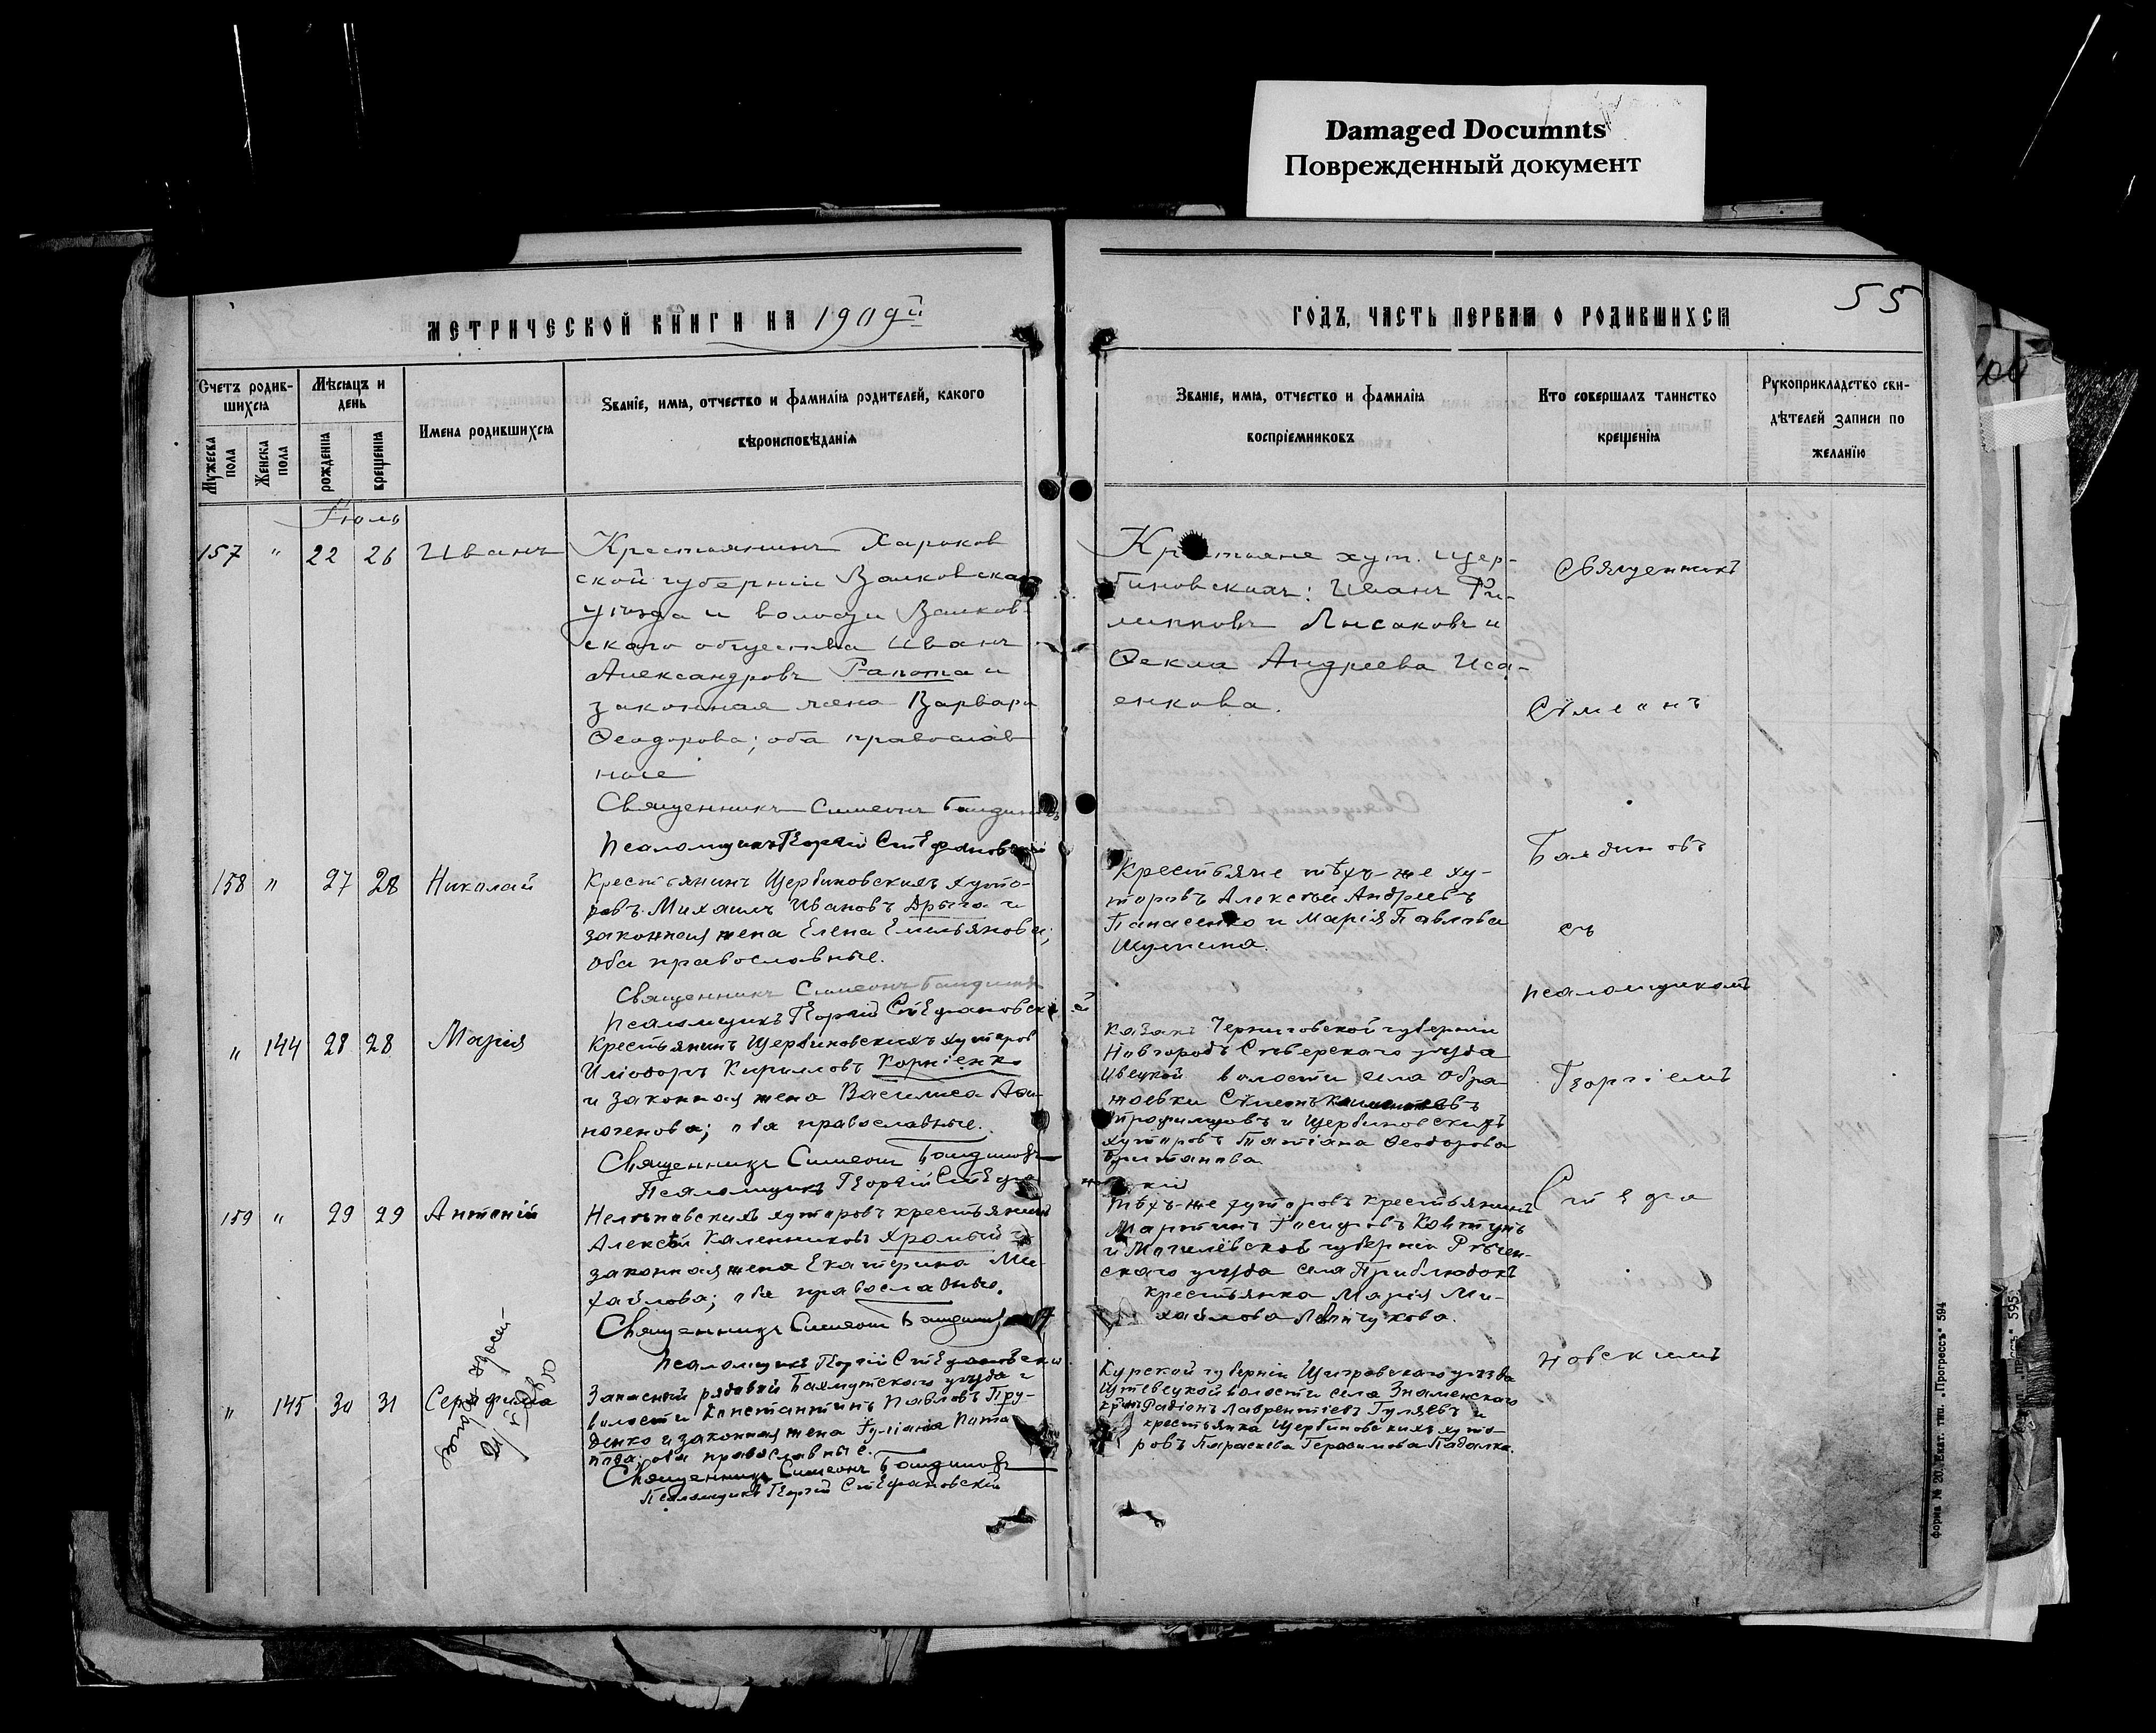 Damaged Documnts
Поврежденный документ
МЕТРИЧЕСКОЙ КНИГИ НА 1909й
ГОДЪ, ЧАСТЬ ПЕРВАЯ О РОДИВШИХСЯ
55
Счетъ родив-
шихся
Мужеска пола
Женска пола
Мѣсяцъ и
день
рожденія
крещенія
Имена родившихся
Званіе, имя, отчество и фамилія родителей, какого
вѣроисповѣданія
Званіе, имя, отчество и фамилія
воспріемниковъ
Кто совершалъ таинство
крещенія
Рукоприкладство сви-
дѣтелей записи по
желанію
Іюль
157 " 22 26 Иванъ
Крестьянинъ Харьков
ской губерніи Валковска
уѣзда и волости Валков-
скаго общества Иванъ
Александровъ Рапота и
законная жена Варвара
Ѳеодорова; оба православ
ные
Священникъ Симеонъ Баядиновъ
Псаломщикъ Георгій Стефановскій
Крестьяне хут. Щер-
биновскихъ: Иванъ Фи-
липповъ Лысаковъ и
Ѳекла Андреева Иса-
енкова.
158 " 27 28 Николай
Крестьянинъ Щербиновскихъ хуто-
ровъ Михаилъ Ивановъ Дрыга и
законная жена Елена Емельянова;
оба православные.
Священникъ Симеонъ Баядиновъ
Псаломщикъ Георгій Стефановскій
Крестьяне тѣхъ-же ху-
торовъ Алексѣй Андреевъ
Панасенко и Марія Павлова
Шульгина.
" 144 28 28 Марія
Крестьянинъ Щербиновскихъ хуторовъ
Иліодоръ Кирилловъ Корніенко
и законная жена Василиса
оба православные.
Священникъ Симеонъ Баядиновъ
Псаломщикъ Георгій Стефановскій
Казакъ Черниговской губерніи
Новгородъ Сѣверскаго уѣзда
волости села
Трофимцовъ и Щербиновскихъ
хуторовъ Татіана Ѳеодорова
159 " 29 29 Антоній
Нелѣповскихъ хуторовъ крестьянинъ
Алексѣй Каленниковъ Хромый и
законная жена Екатерина Ми-
хайлова; оба православные.
Священникъ Симеонъ Баядиновъ
Псаломщикъ Георгій Стефановскій
Тѣхъ-же хуторовъ крестьянинъ
Мартинъ Іосифовъ Ковтунъ
и Могилевской губерніи Рѣчен-
скаго уѣзда села
крестьянка Марія Ми-
хайлова
" 145 30 31 Серафима
Запасный рядовой Бахмутскаго уѣзда и
волости Константинъ Павловъ Пру-
денко и законная жена Іуліанія Пота
пова; оба православные.
Священникъ Симеонъ Баядиновъ
Псаломщикъ Георгій Стефановскій
Курской губерніи Щигровскаго уѣзда
волости села Знаменскаго
Родіонъ Лаврентіевъ Гуляевъ и
крестьянка Щербиновскихъ хуто-
ровъ Параскева Герасимова Падалка.
Священникъ
Сѵмеонъ
Баядиновъ
съ
псаломщикомъ
Георгіемъ
Стефа
новскимъ
форма № 20. Екат. тип. „Прогрессъ" 594